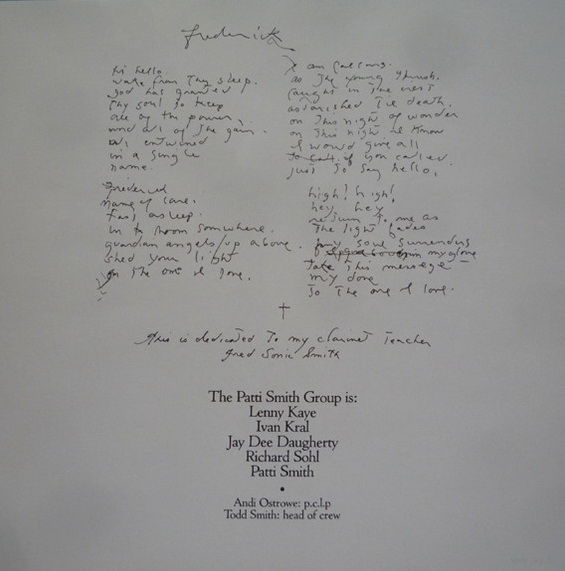 Frederick
hi hello
wake from thy sleep.
god has granted
thy soul to keep
all of the power,
and all of the gain.
all entwined
in a single
name.
Frederick
name of care.
fast asleep.
in a room somwhere.
guardian angels/up above.
shed your light
on the one I love.
I am
as the young thrush.
caught in the nest
astonished
on this night of wonder
on this night I know
I would give all
if you called.
just to say hello.
high! high!
hey hey
return to me as
the light fades
my soul surrenders
my glove
Take this message
my dove
to the one I love.
†
this is dedicated to my clarinet teacher
fred Sonic Smith
The Patti Smith Group is:
Lenny Kaye
Ivan Kral
Jay Dee Daugherty
Richard Sohl
Patti Smith
•
Andi Ostrowe: p.c.l.p
Todd Smith: head of crew